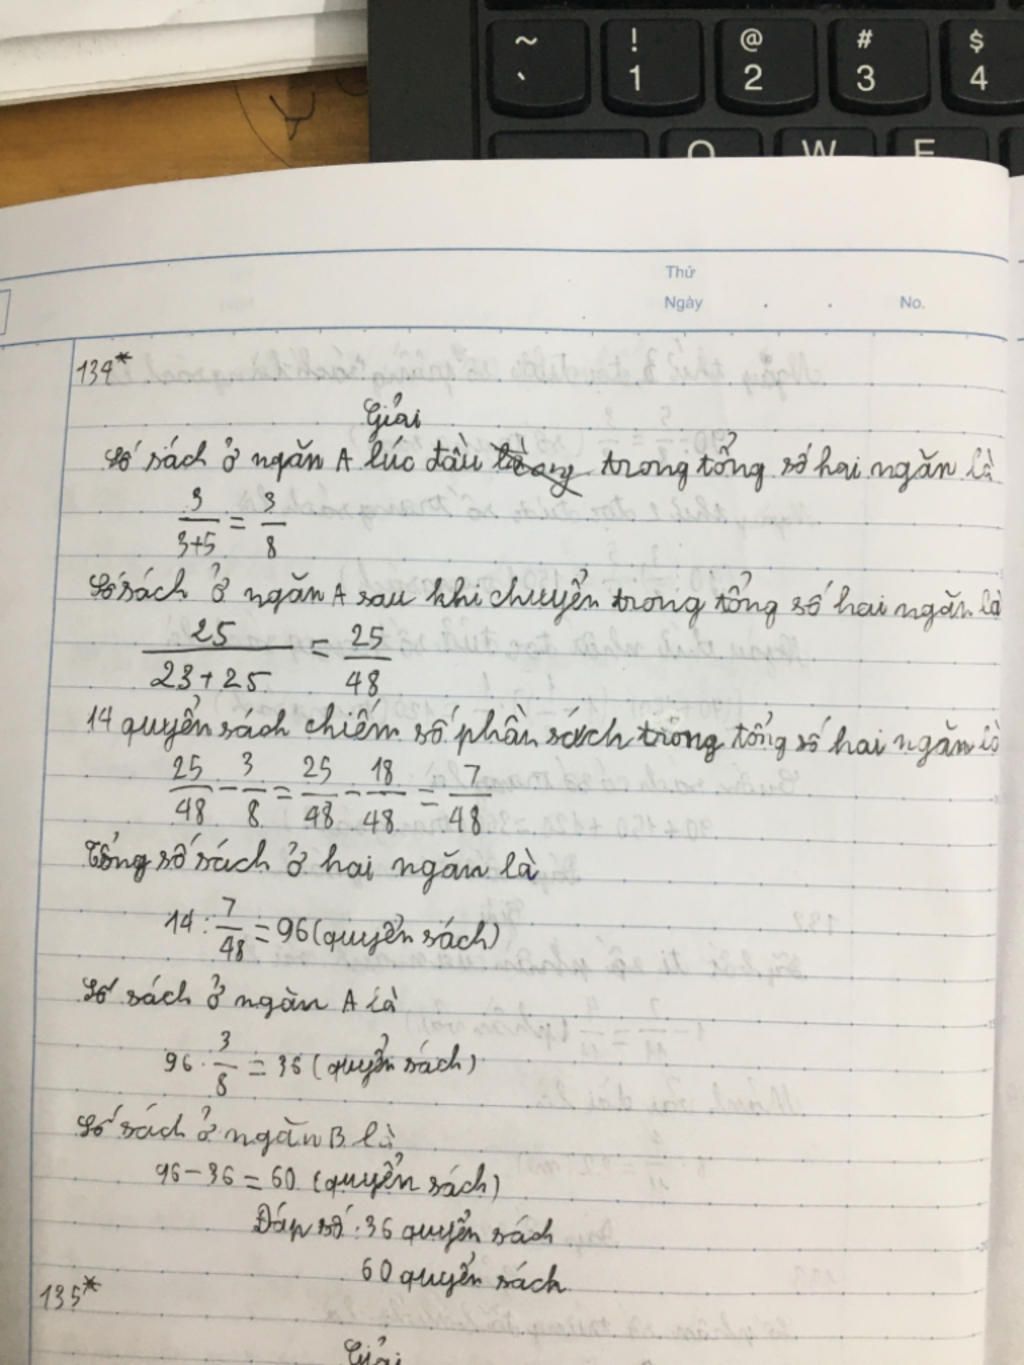 ~ ! @ # $
` 1 2 3 4
Q W E
Thứ
Ngày . . No.
134*
Giải
Số sách ở ngăn A lúc đầu trong tổng số hai ngăn là
3/(3+5) = 3/8
Số sách ở ngăn A sau khi chuyển trong tổng số hai ngăn là
25/(23+25) = 25/48
14 quyển sách chiếm số phần sách trong tổng số hai ngăn là
25/48 - 3/8 = 25/48 - 18/48 = 7/48
Tổng số sách ở hai ngăn là
14 : 7/48 = 96 (quyển sách)
Số sách ở ngăn A là
96 . 3/8 = 36 (quyển sách)
Số sách ở ngăn B là
96 - 36 = 60 (quyển sách)
Đáp số : 36 quyển sách
60 quyển sách
135*
Giải